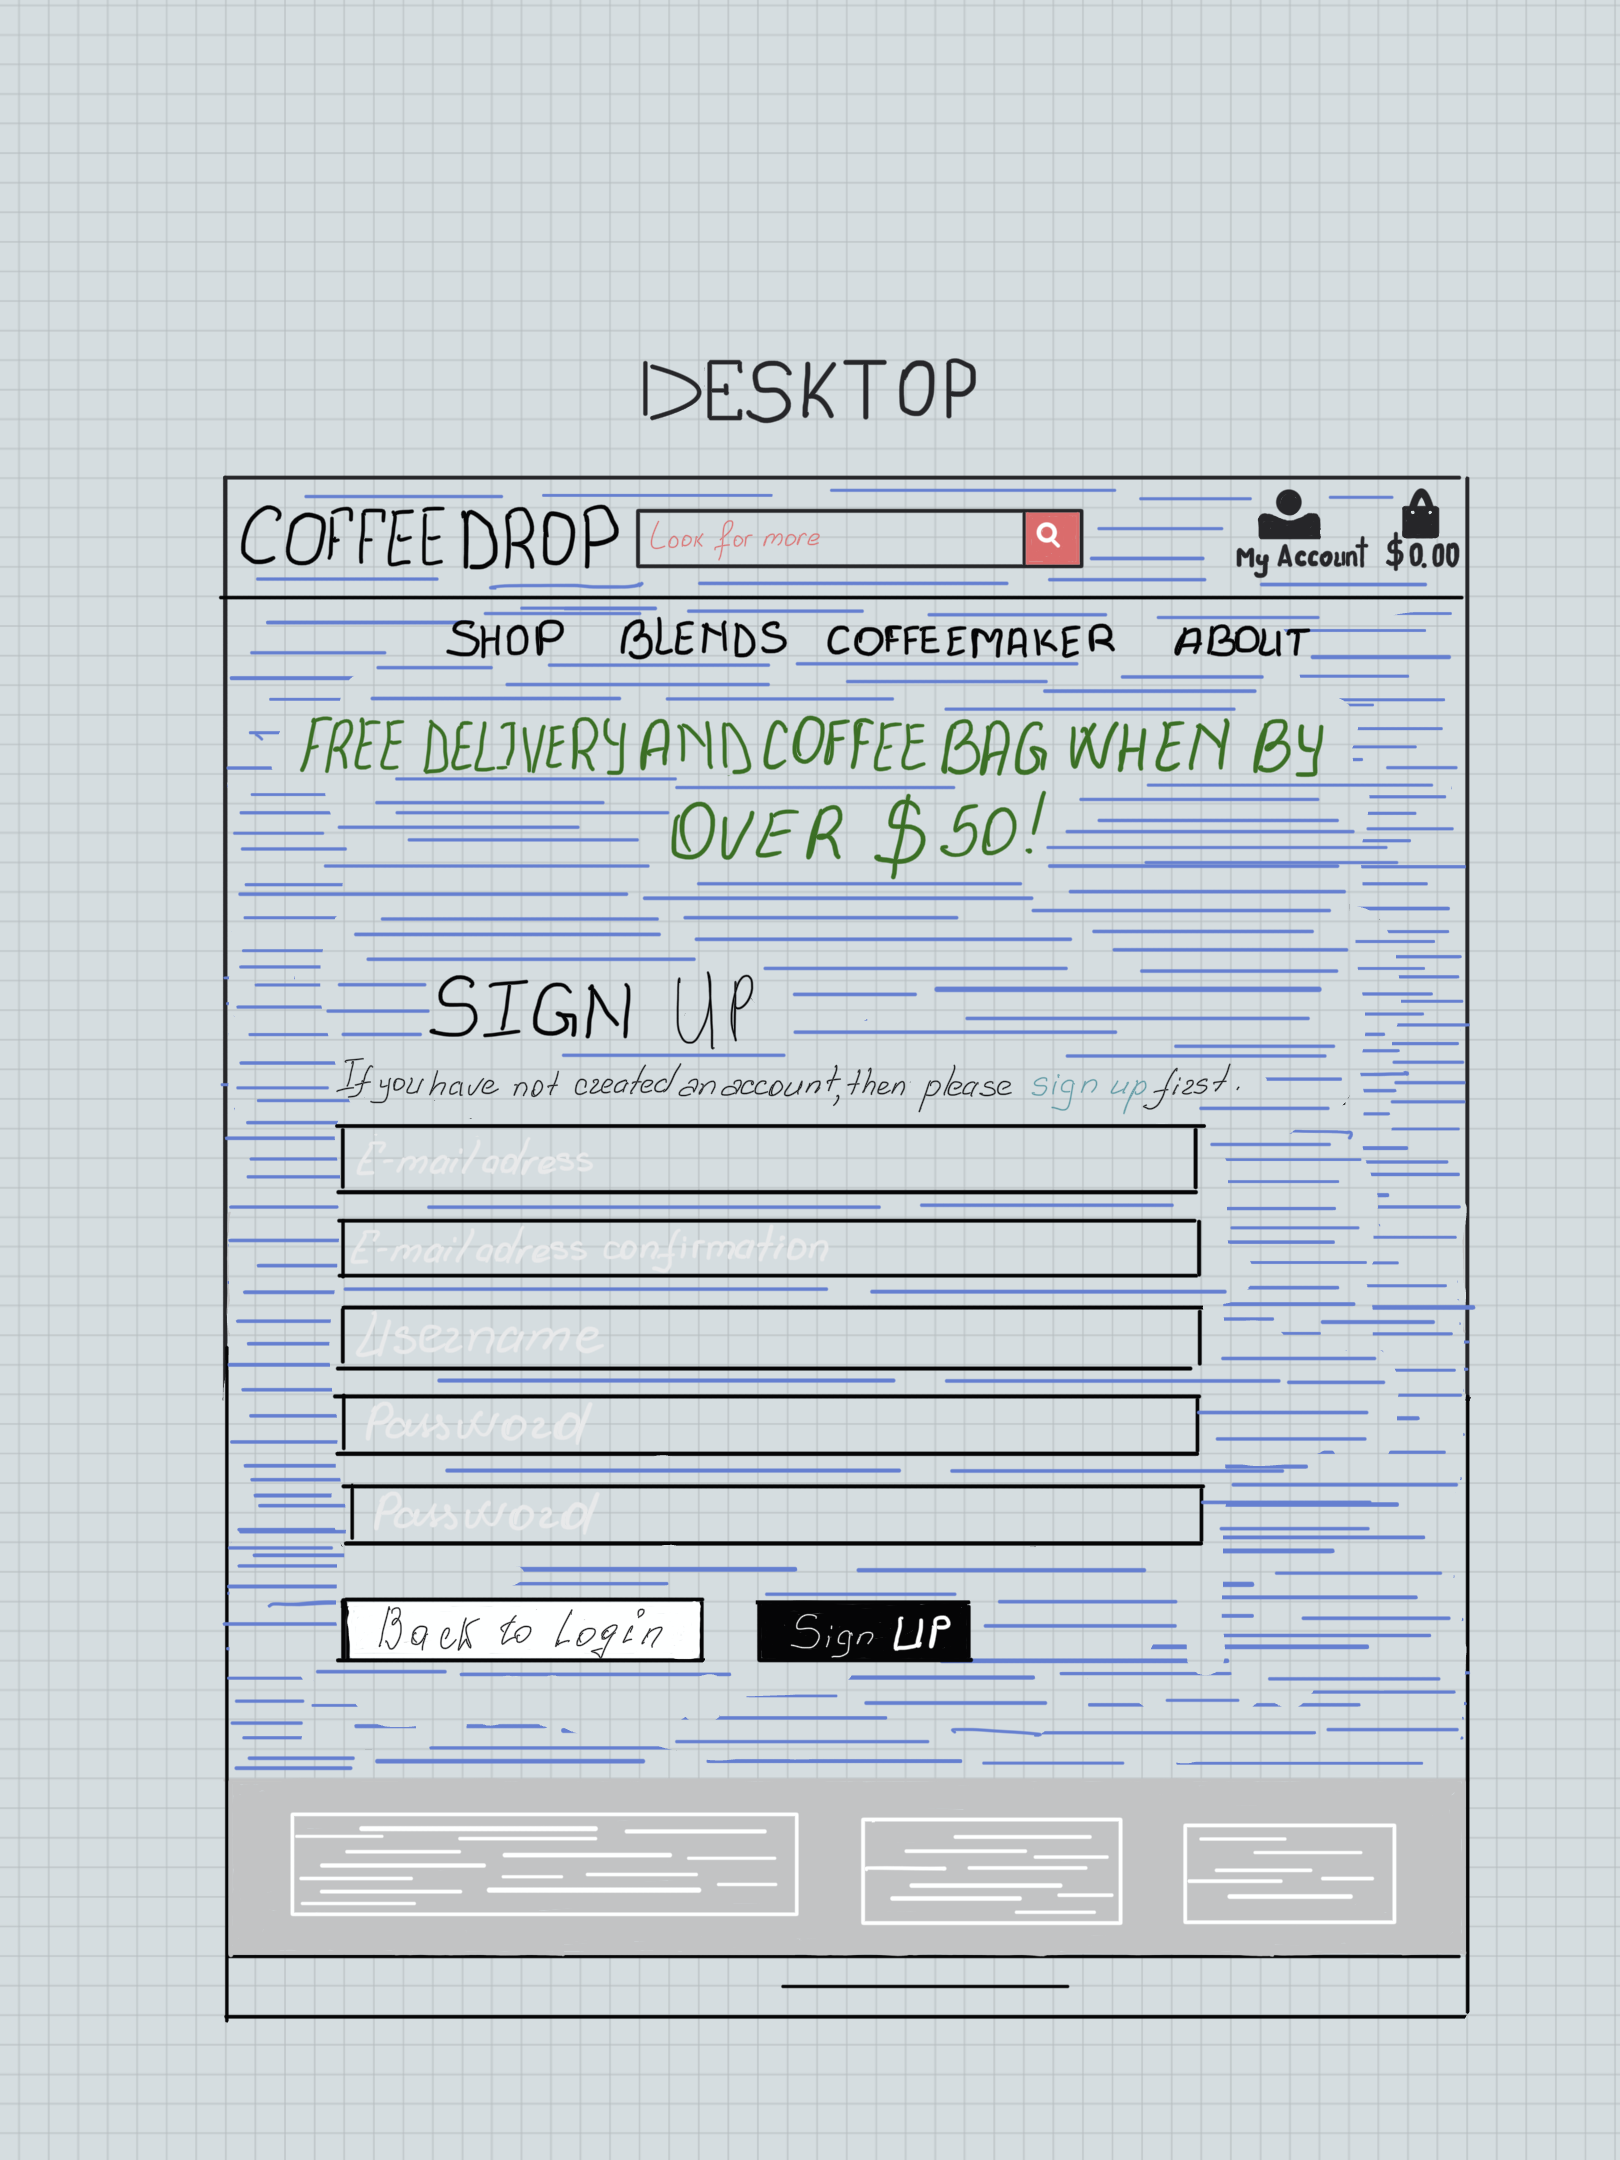 DESKTOP
COFFEEDROP Look for more My Account $0.00
SHOP BLENDS COFFEEMAKER ABOUT
FREE DELIVERY AND COFFEE BAG WHEN BY
OVER $50!
SIGN UP
If you have not created an account, then please sign up first.
E-mail adress
E-mail adress confirmation
Username
Password
Password
Back to Login Sign UP